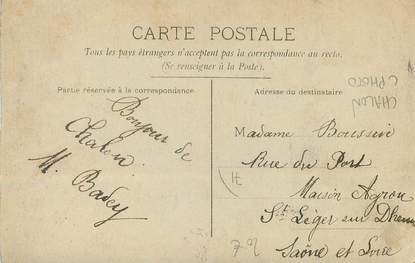 CARTE POSTALE
Tous les pays étrangers n'acceptent pas la correspondance au recto.
(Se renseigner à la Poste).
Partie réservée à la correspondance.
Bonjour de
Chalon.
M. Badey
Adresse du destinataire
CHALON
C PHOTO
Madame Boussin
Rue du Port
Maison Agron
St Léger sur Dheune
Saône et Loire